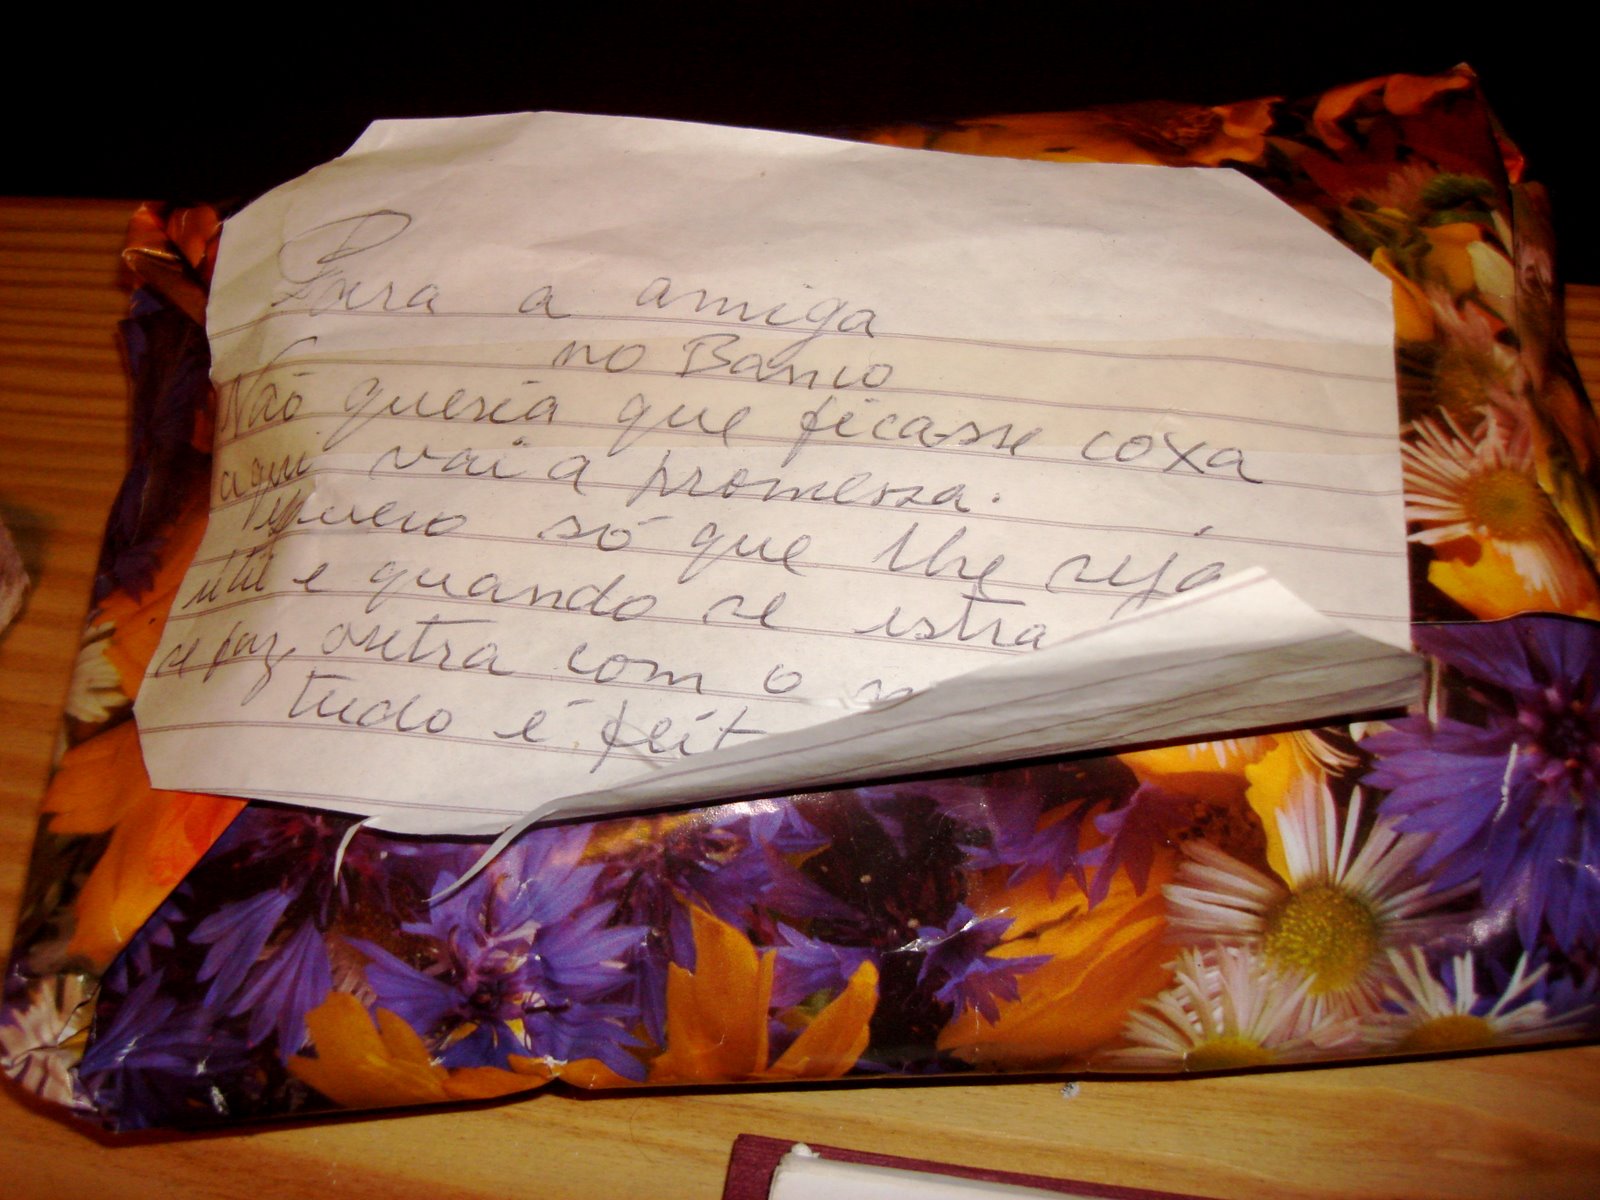 Para a amiga
no Banco
Não queria que ficasse coxa
aqui vai a promessa.
quero só que lhe seja
útil e quando se estra
se faz outra com o
tudo é feit